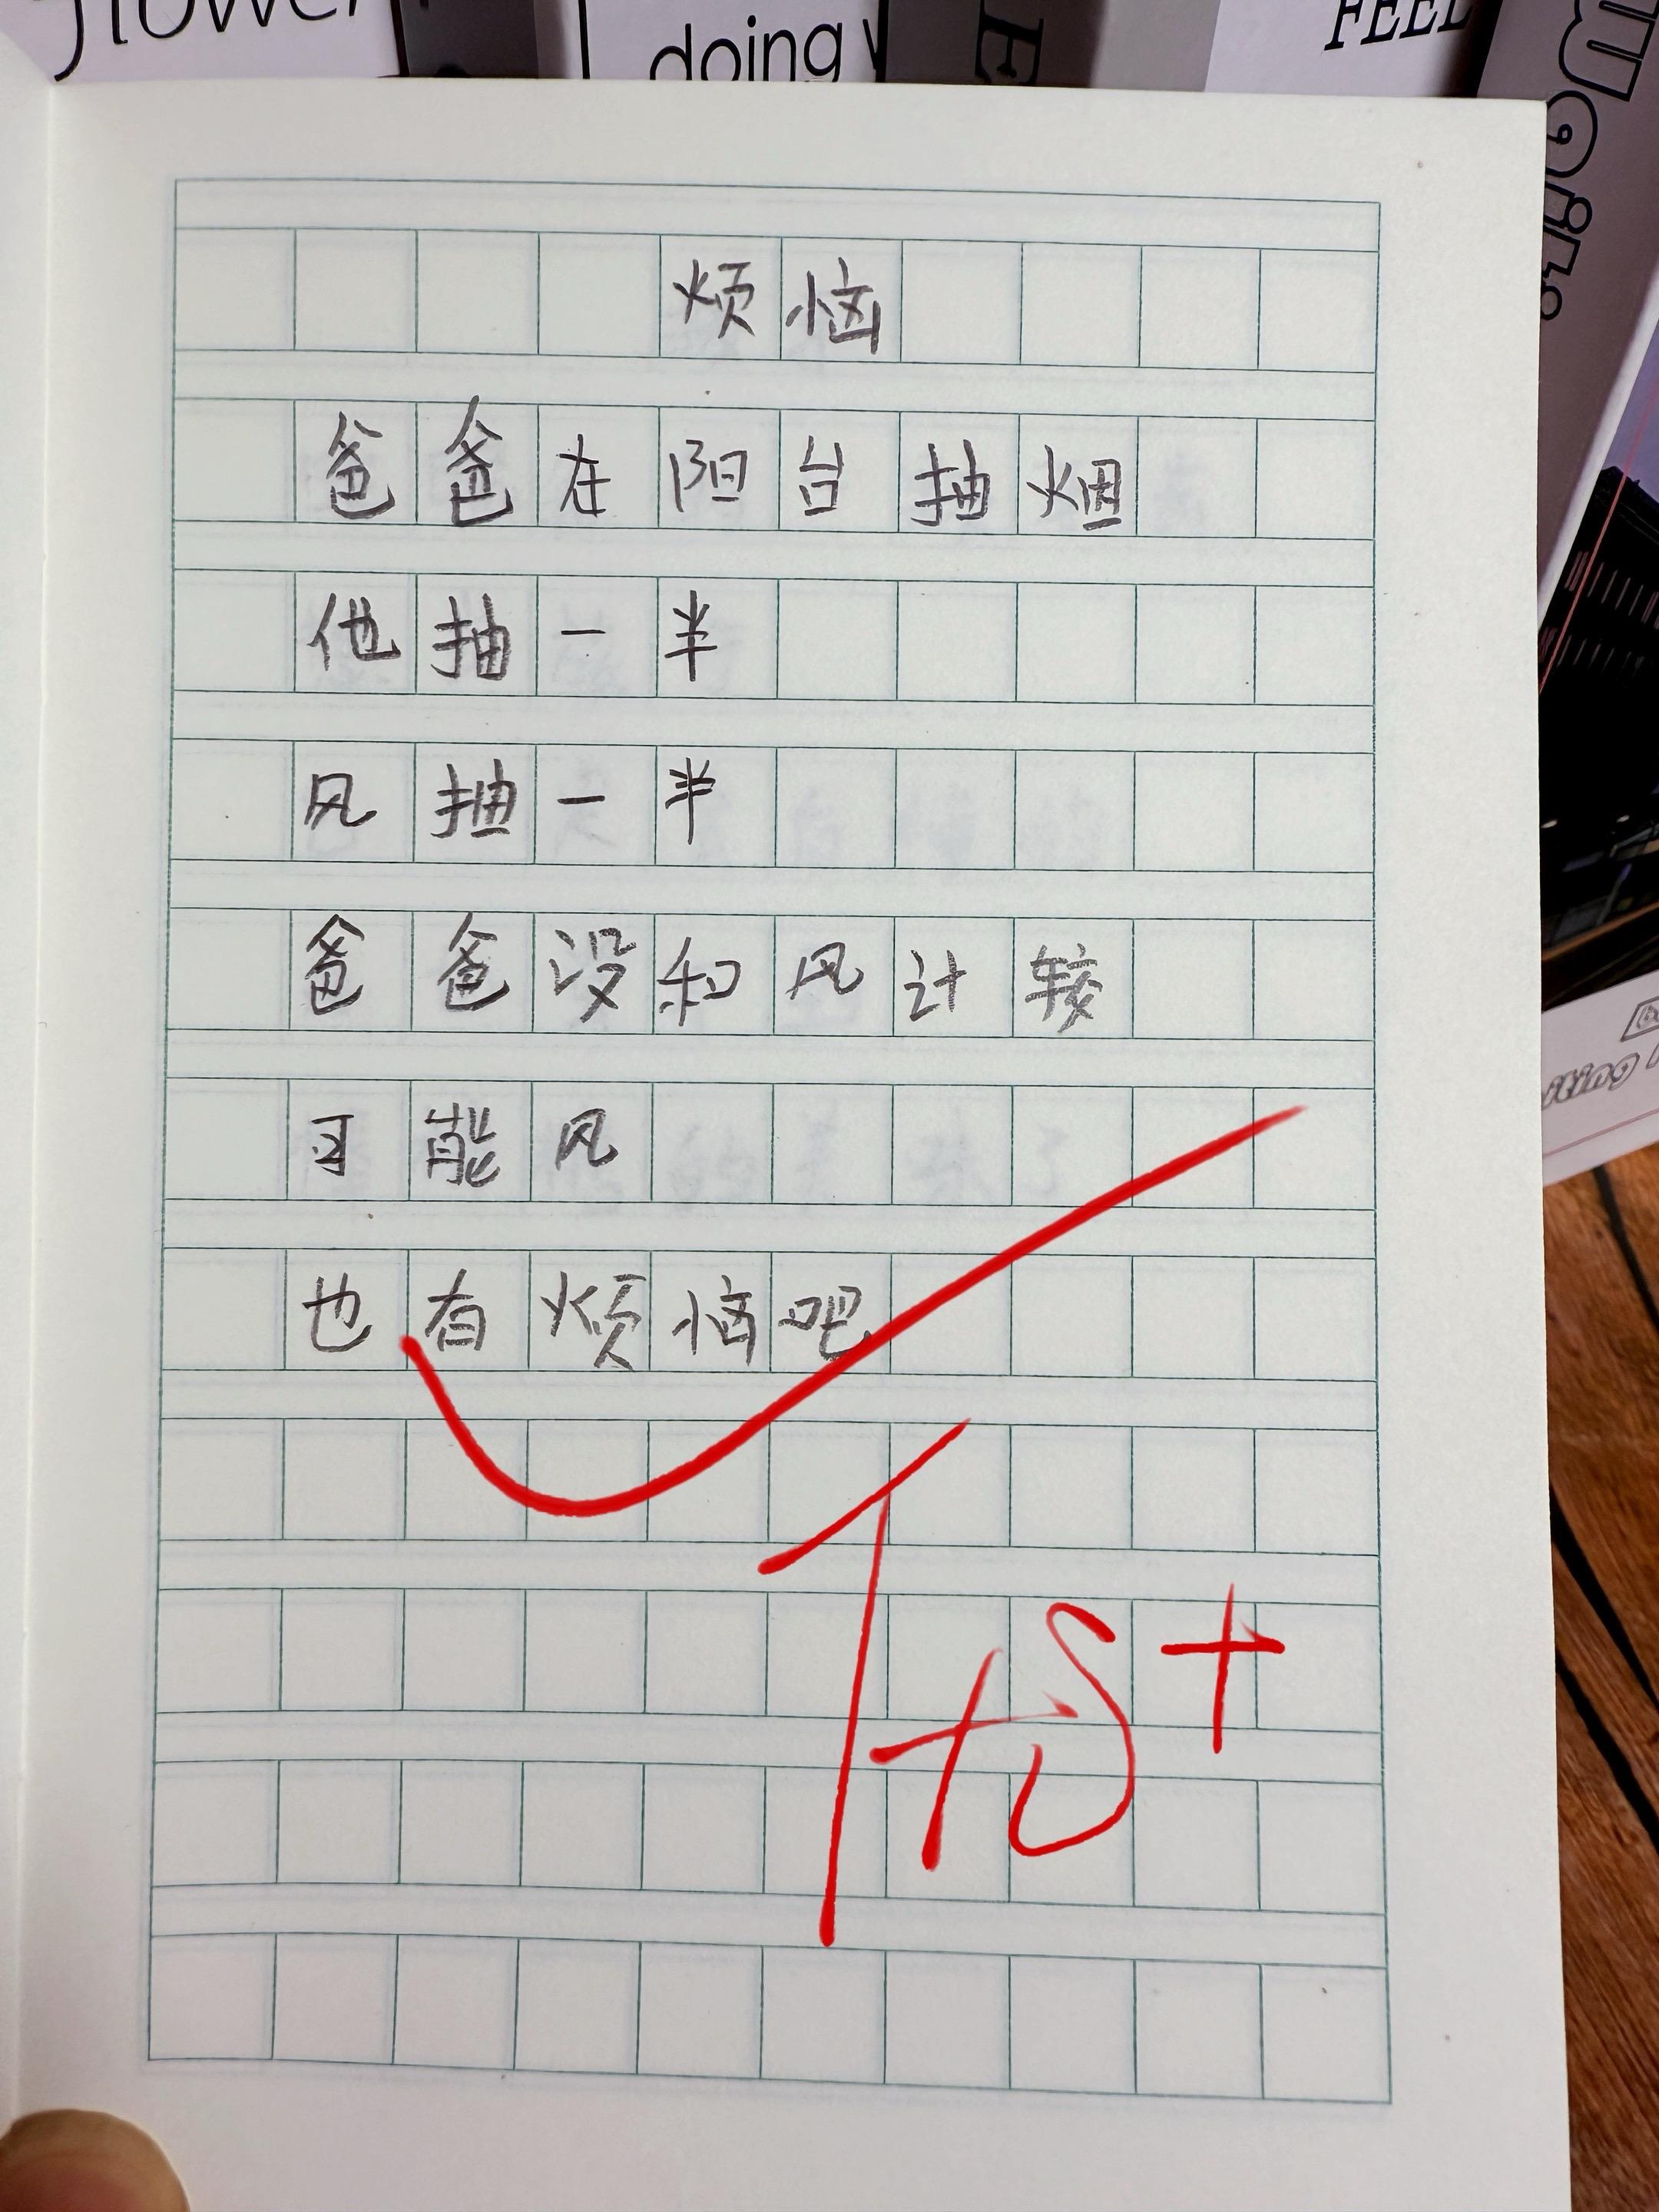 flower
doing
E
FEEL
烦恼
爸爸在阳台抽烟
他抽一半
风抽一半
爸爸没和风计较
可能风
也有烦恼吧